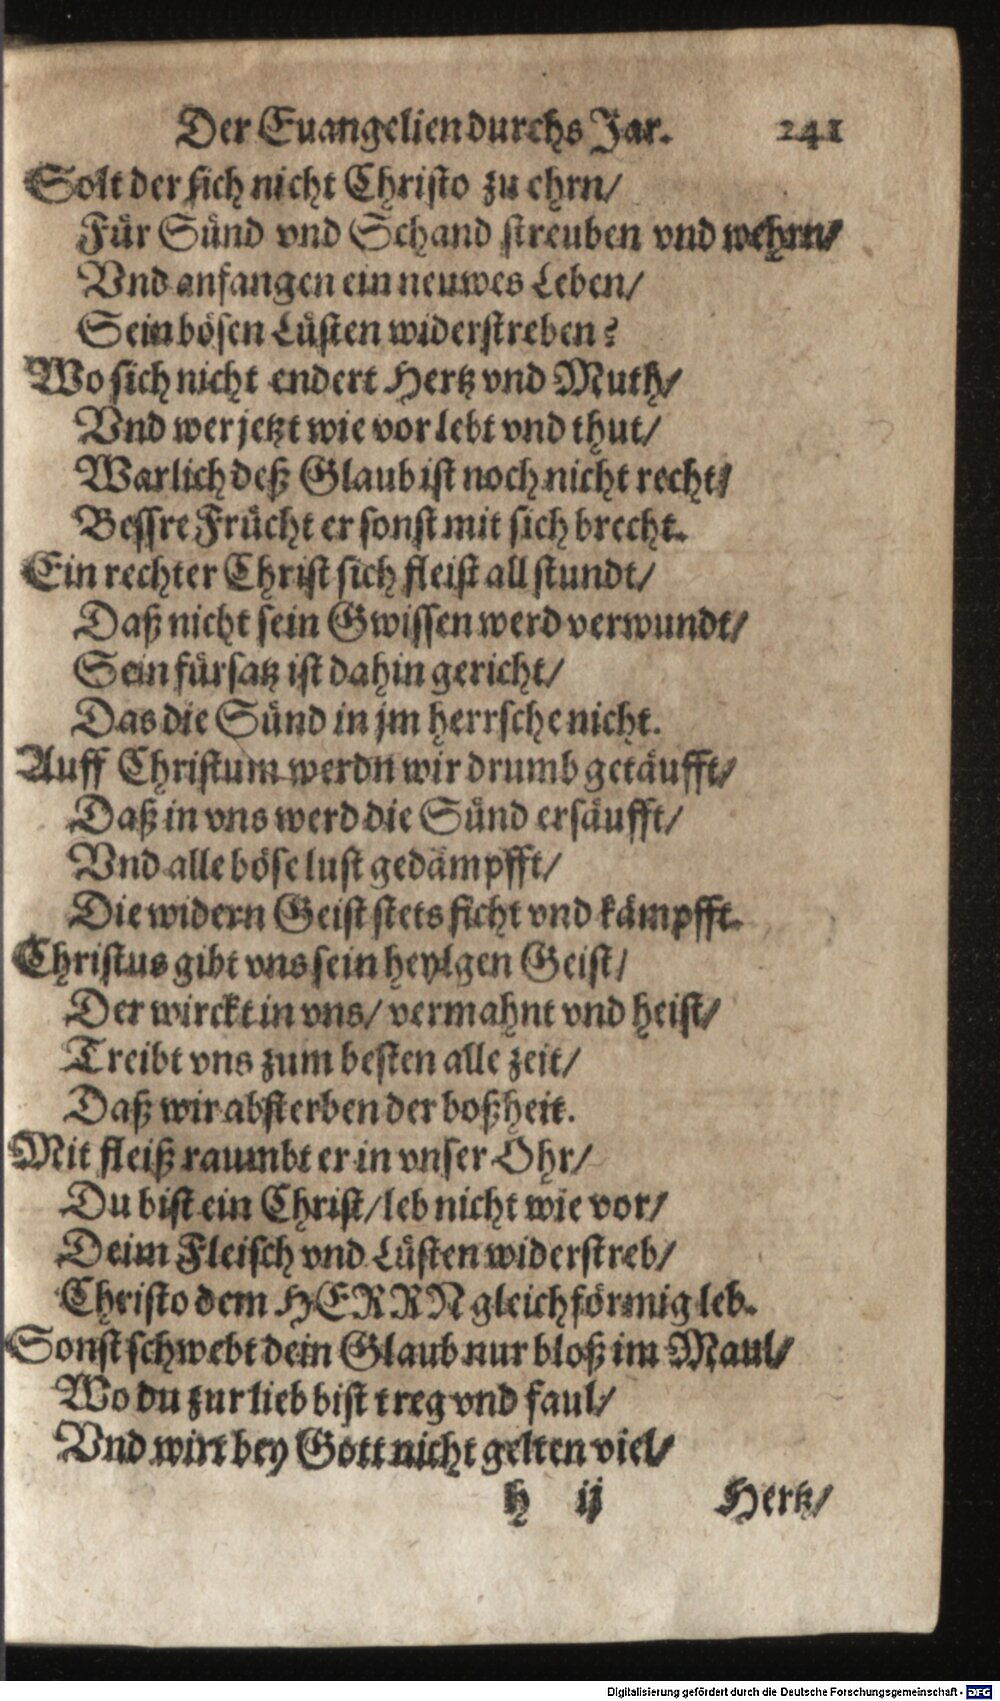 Der Euangelien durchs Jar. 241
Solt der sich nicht Christo zu ehrn/
Für Sünd vnd Schand streuben vnd wehrn/
Vnd anfangen ein neuwes Leben/
Sein bösen Lüsten widerstreben?
Wo sich nicht endert Hertz vnd Muth/
Vnd wer jetzt wie vor lebt vnd thut/
Warlich deß Glaub ist noch nicht recht/
Bessre Frücht er sonst mit sich brecht.
Ein rechter Christ sich fleist all stundt/
Daß nicht sein Gwissen werd verwundt/
Sein fürsatz ist dahin gericht/
Das die Sünd in jm herrsche nicht.
Auff Christum werdn wir drumb getäufft/
Daß in vns werd die Sünd ersäufft/
Vnd alle böse lust gedämpfft/
Die widern Geist stets ficht vnd kämpfft.
Christus gibt vns sein heylgen Geist/
Der wirckt in vns/ vermahnt vnd heist/
Treibt vns zum besten alle zeit/
Daß wir absterben der boßheit.
Mit fleiß raumbt er in vnser Ohr/
Du bist ein Christ/ leb nicht wie vor/
Deim Fleisch vnd Lüsten widerstreb/
Christo dem HERRN gleichförmig leb.
Sonst schwebt dein Glaub nur bloß im Maul/
Wo du zur lieb bist treg vnd faul/
Vnd wirt bey Gott nicht gelten viel/
h ij Hertz/
Digitalisierung gefördert durch die Deutsche Forschungsgemeinschaft - DFG